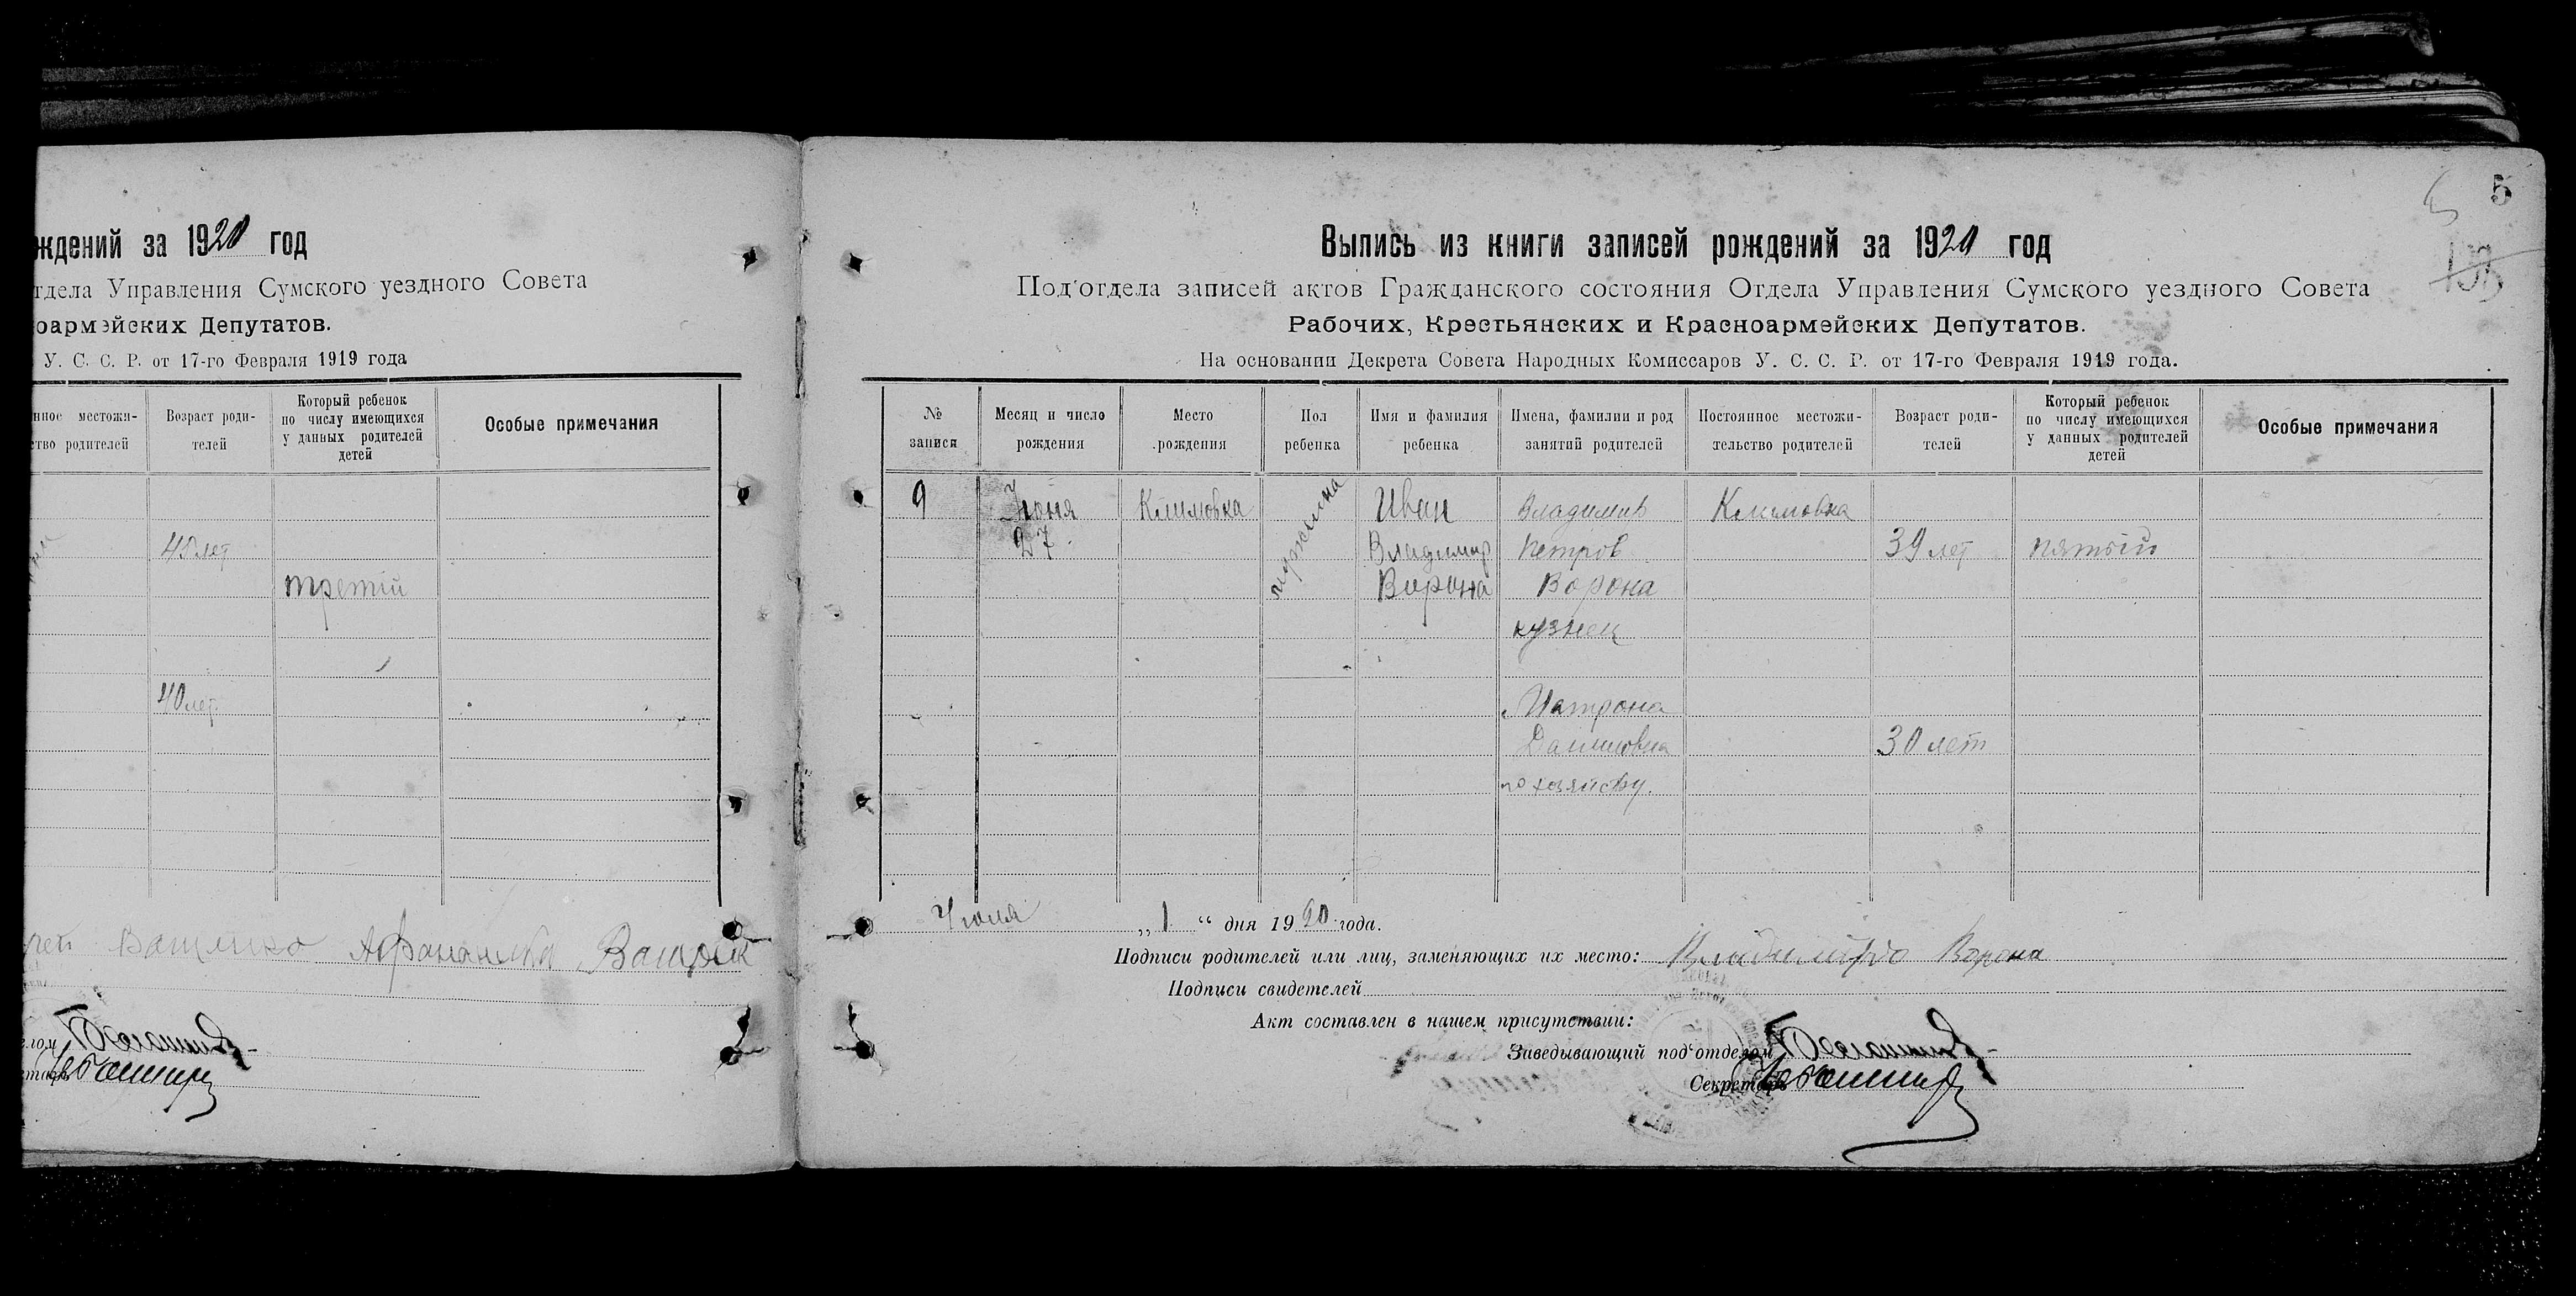 ждений за 1920 год
тдела Управления Сумского уездного Совета
оармейских Депутатов.
У. С. С. Р. от 17-го Февраля 1919 года
нное местожи-
ство родителей
Возраст роди-
телей
Который ребенок
по числу имеющихся
у данных родителей
детей
Особые примечания
40 лет
третій
40 лет
5
5
Выпись из книги записей рождений за 1920 год
Под'отдела записей актов Гражданского состояния Отдела Управления Сумского уездного Совета
Рабочих, Крестьянских и Красноармейских Депутатов.
На основании Декрета Совета Народных Комиссаров У. С. С. Р. от 17-го Февраля 1919 года.
№
записи
Месяц и число
рождения
Место
рождения
Пол
ребенка
Имя и фамилия
ребенка
Имена, фамилии и род
занятий родителей
Постоянное местожи-
тельство родителей
Возраст роди-
телей
Который ребенок
по числу имеющихся
у данных родителей
детей
Особые примечания
9
Июня
27
Климовка
мужчина
Иван
Владимир
Ворона
Владимир
Петров
Ворона
кузнец
Матрона
по хозяйству.
Климовка
39 лет
30 лет
пятый
Июля „1“ дня 1920 года.
Подписи родителей или лиц, заменяющих их место: Ворона
Подписи свидетелей
Акт составлен в нашем присутствии:
Заведывающий под'отделом
Секретарь